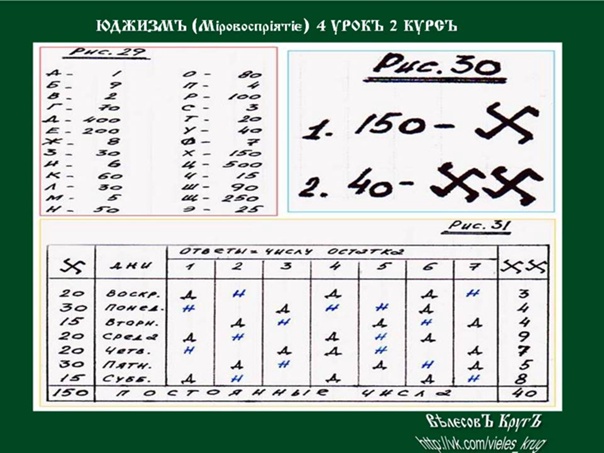 ЮДЖИЗМЪ (Мiровоспрiятiе) 4 УРОКЪ 2 КУРСЪ
Рис. 29
А - 1 О - 80
Б - 9 П - 4
В - 2 Р - 100
Г - 70 С - 3
Д - 400 Т - 20
Е - 200 У - 40
Ж - 8 Ф - 7
З - 30 Х - 150
И - 6 Ц - 500
К - 60 Ч - 15
Л - 30 Ш - 90
М - 5 Щ - 250
Н - 50 Э - 25
Рис. 30
1. 150 - 卐
2. 40 - 卐卐
Рис. 31
卐 ДНИ ОТВЕТЫ = ЧИСЛУ ОСТАТКА 卐卐
1 2 3 4 5 6 7
20 ВОСКР. Д Н Д Д Н 3
30 ПОНЕД. Н Д Н Н Д 4
15 ВТОРН. Д Н Д Н Д 4
20 СРЕДА Д Н Д Н Д 9
20 ЧЕТВ. Н Д Д Н Д 7
30 ПЯТН. Д Н Д Н Д 5
15 СУББ. Д Н Д Д Н 8
150 ПОСТОЯННЫЕ ЧИСЛА 40
ВѢлесовЪ КругЪ
http://vk.com/vieles_krug